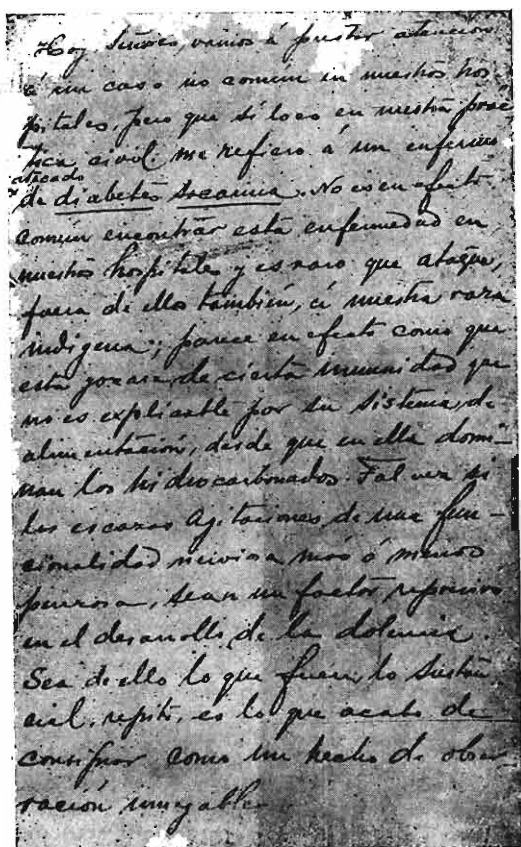 Hoy Señores, vamos á prestar atencion
á un caso no común en nuestros hos
pitales, pero que sí lo es en nuestra prác
tica civil. me refiero á un enfermo
atacado
de diabetes sacarina. No es en efecto
comun encontrar esta enfermedad en
nuestros hospitales y es raro que ataque,
fuera de ellos también, á nuestra raza
indígena; parece en efecto como que
esta gozara de cierta inmunidad que
no es explicable por su sistema de
alimentación, desde que en ella domi-
nan los hidrocarbonados. Tal vez si
las escazas agitaciones de una fun-
cionalidad nerviosa más ó menos
perezosa, sean un factor represivo
en el desarrollo de la dolencia.
Sea de ello lo que fuere, lo sustan
cial, repito, es lo que acabo de
consignar como un hecho de obser
vación innegable